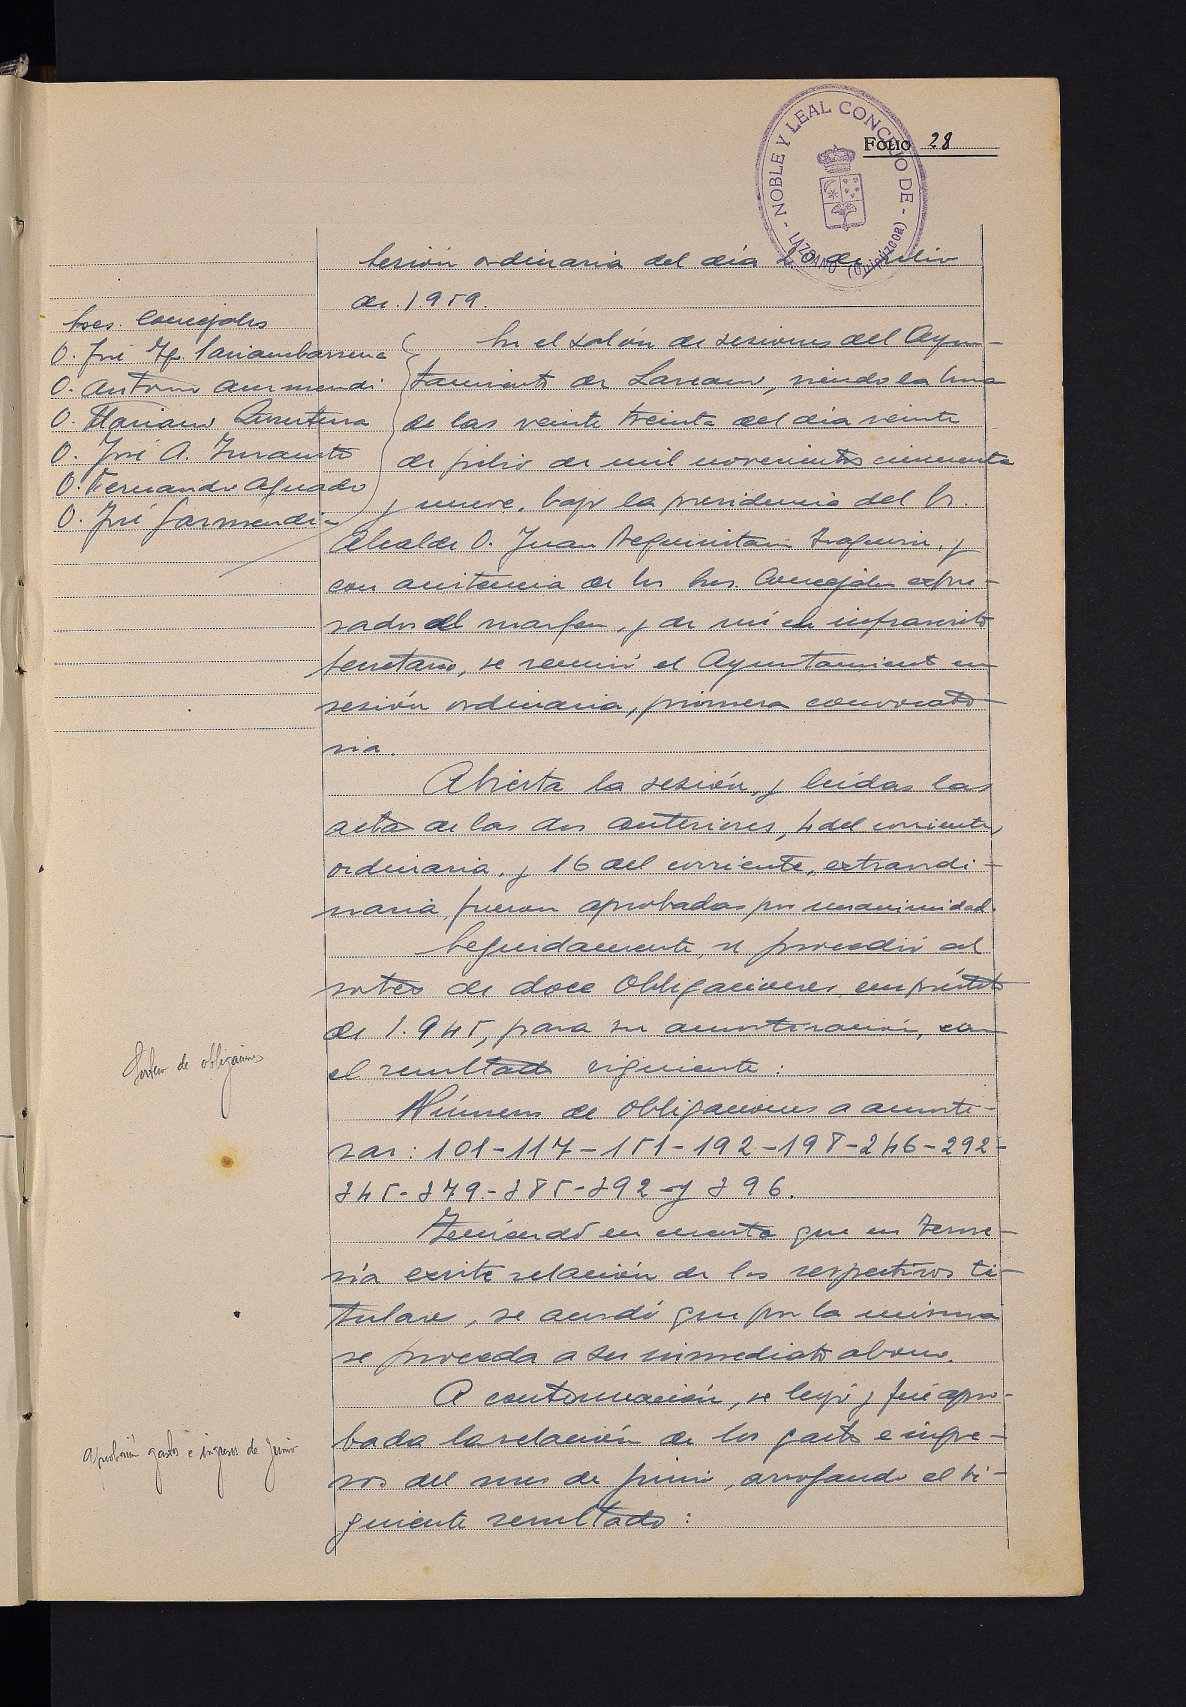 NOBLE Y LEAL CONCEJO DE - LAZCANO (Guipúzcoa) -
FOLIO 28
Sesión ordinaria del día 20 de julio
de 1.959.
Sres. Concejales
D. José Mª
D. Antonio Aurmendi
D. Mariano
D. José A.
D. Fernando Aguado
D. José Garmendia
En el salón de sesiones del Ayun-
tamiento de Lazcano, siendo la hora
de las veinte treinta del día veinte
de julio de mil novecientos cincuenta
y nueve, bajo la presidencia del Sr.
Alcalde D. Juan, y
con asistencia de los Sres. Concejales expre-
sados al margen, y de mí el infrascrito
Secretario, se reunió el Ayuntamiento en
sesión ordinaria, primera convocato-
ria.
Abierta la sesión, y leídas las
actas de las dos anteriores, 4 del corriente,
ordinaria, y 16 del corriente, extraordi-
naria, fueron aprobadas por unanimidad.
Seguidamente, se procedió al
sorteo de doce Obligaciones, empréstito
de 1.945, para su amortización, con
el resultado siguiente:
Sorteo de obligaciones
Números de obligaciones a amorti-
zar: 101-117-151-192-198-246-292-
345-379-385-392 y 396.
Teniendo en cuenta que en Tesore-
ría existe relación de los respectivos ti-
tulares, se acordó que por la misma
se proceda a su inmediato abono.
A continuación, se leyó y fué apro-
bada la relación de los gastos e ingre-
sos del mes de junio, arrojando el si-
guiente resultado:
Aprobación gastos e ingresos de Junio